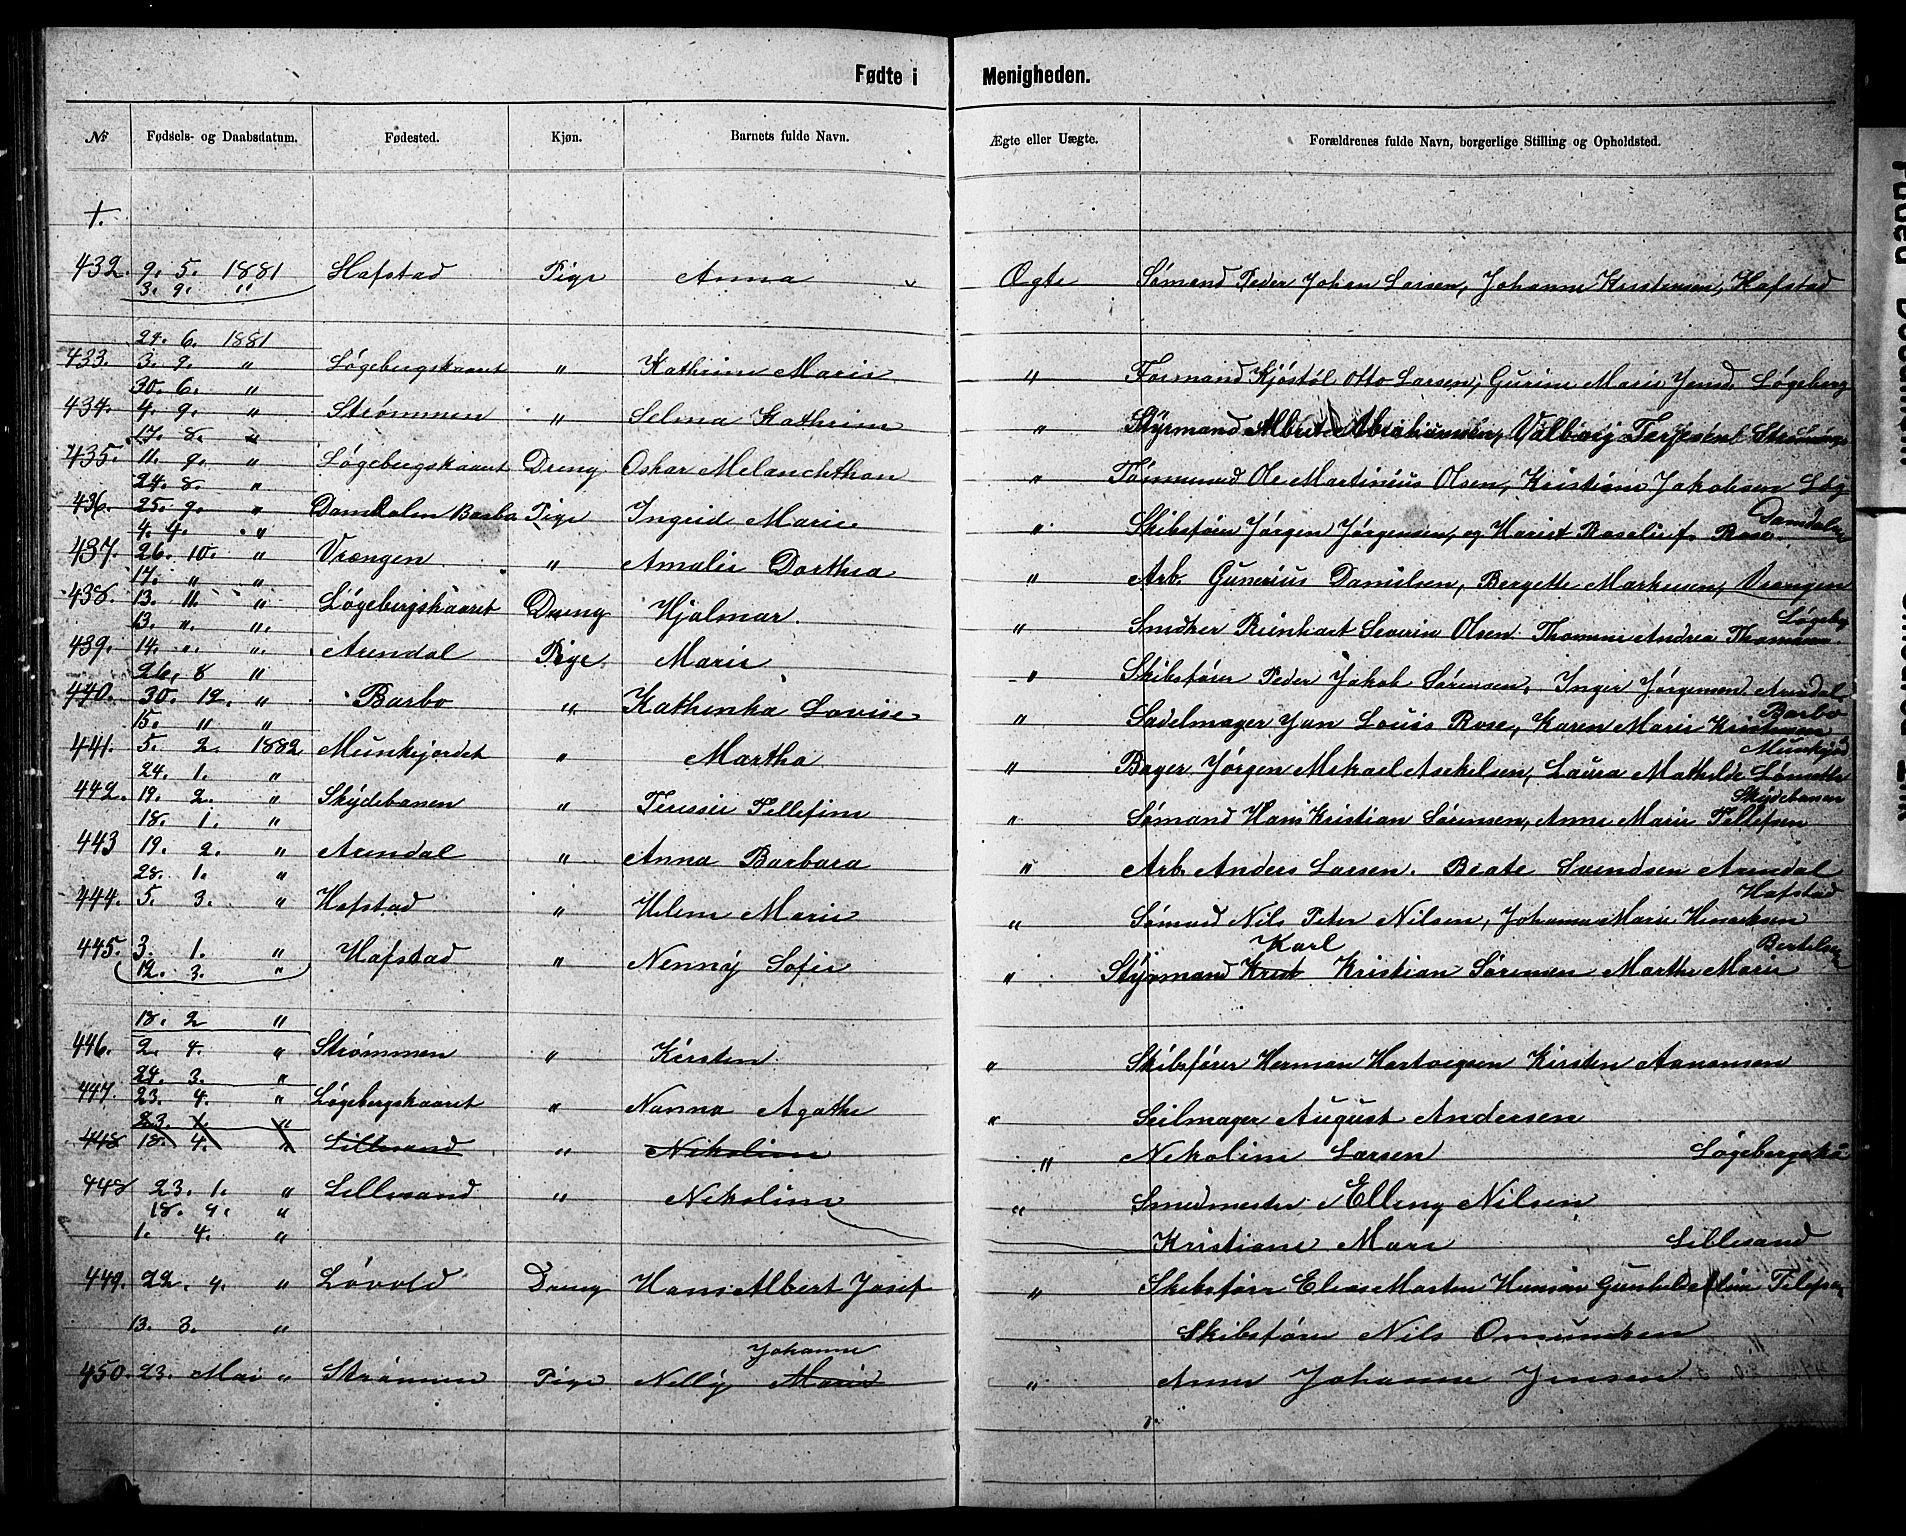 Fødte i Menigheden.
№ Fødsels- og Daabsdatum. Fødested. Kjøn. Barnets fulde Navn. Ægte eller Uægte. Forældrenes fulde Navn, borgerlige Stilling og Opholdsted.
1.
432. 9. 5. 1881 Hafstad Pige Anna Ogte Sømand Peder Johan Larsen, Johanne Kerstensen, Hafstad
3. 9. "
29. 6. 1881
433. 3. 9. " Løgebergskaaret " Kathrine Marie " Formand Kjøstøl Otto Larsen, Gurine Marie Løgeberg
30. 6. "
434. 4. 9. " Strømmen " Selma Kathrine " Styrmand Albert Abrahamsen, Valborg Terjesen
17. 8. "
435. 11. 9. " Løgebergskaaret Dreng Oskar Melanchthon " Tømmermand Ole Martinius Olsen, Kristine Jakobsen Løg
24. 8. "
436. 25. 9. " Damdalen Barbo Pige Ingrid Marie " Skibsfører Jørgen Jørgensen, og Hariet Roselie f. Rose. Damdalen
4. 4. "
437. 26. 10. " Vrængen " Amalie Dorthea " Arb. Gunerius Danielsen, Bergette Markusen, Vrængen
17. " "
438. 13. 11. " Løgebergskaaret Dreng Hjalmar. " Snedker Reinhart Severin Olsen Thomine Andrea Thomasen Løgebg
13. " "
439. 14. " " Arendal Pige Marie " Skibsfører Peder Jakob Sørensen, Inger Jørgensen Arendal
26. 8 "
440. 30. 12. " Barbo " Kathinka Lovise " Sadelmager Jan Louis Rose, Karen Marie Kristensen Barbo
15. " "
441. 5. 2. 1882 Munkejordet " Martha " Bager Jørgen Mikael Asekelsen, Laura Mathilde Munkejord
24. 1. "
442. 19. 2. " Skydebanen " Teresie Tellefine " Sømand Hans Kristian Sørensen, Anne Marie Tellefsen Skydebanen
18. 1. "
443 19. 2. " Arendal " Anna Barbara " Arb. Anders Larsen. Beate Svendsen Arendal
28. 1. "
444. 5. 3. " Hafstad " Helene Marie " Sømand Nils Peter Nilsen, Johanna Marie Henriksen Hafstad
445. 3. 1. " Hafstad " Nenny Sofie " Styrmand Krist Karl Kristian Sørensen Marthe Marie Bertelsen
12. 3. "
18. 2 "
446. 2. 4. " Strømmen " Kirsten " Skibsfører Herman Hartvigsen Kirsten Aanonsen
24. 3. "
447. 23. 4. " Løgebergskaaret " Nanna Agathe " Seilmager August Andersen
23. 1. "
448 18. 4. " Lillesand " Nikoline " Nikoline Larsen Løgebergska
448 23. 1. " Lillesand " Nikoline " Smedmester Elling Nilsen
18. 4. "
1. 4. " Kristiane Marie Lillesand
449. 22. 4. " Løvold Dreng Hans Albert Josef " Skibsfører Elias Morten Hansen
13. 3. " Skibsfører Nils Omundsen
450. 23. Mai " Strømmen Pige Nelly Marie Johanne " Anne Johanne Jensen